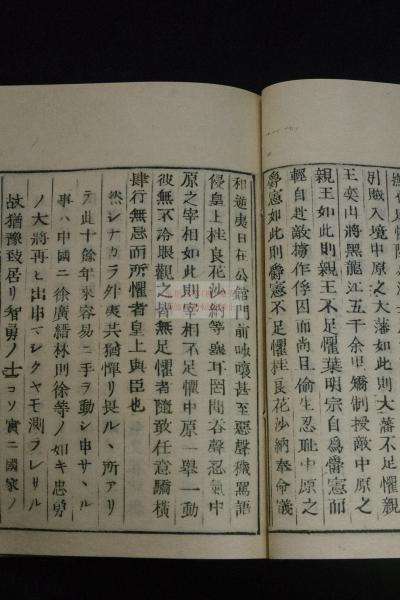 撫者足懼陸
引賊入境中原之大藩如此則大藩不足懼親
王奕山將黑龍江五千余里矯制授敵中原之
親王如此則親王不足懼葉明宗自爲爵憲而
輕自赴敵撈作俘囚而尚且偷生忍耻中原之
爵憲如此則爵憲不足懼桂良花沙納奉命議
和逆夷日在公館門前呶嚷甚至惡聲穢罵語
侵皇上桂良花沙納等兩耳罔聞吞聲忍氣中
原之宰相如此則宰相不足懼中原一舉一動
彼無不冷眼觀之皆無足懼者隨敢任意驕橫
肆行無忌而所懼者皇上與臣也
然シナカラ外夷共猶憚リ畏ル、所アリ
テ此十餘年來容易ニ手ヲ動シ申サ、ル
事ハ中國ニ徐廣縉林則徐等ノ如キ忠勇
ノ大將再ヒ出申マシクヤモ測ラレサル
故猶豫致居リ智勇ノ士コソ實ニ國家ノ